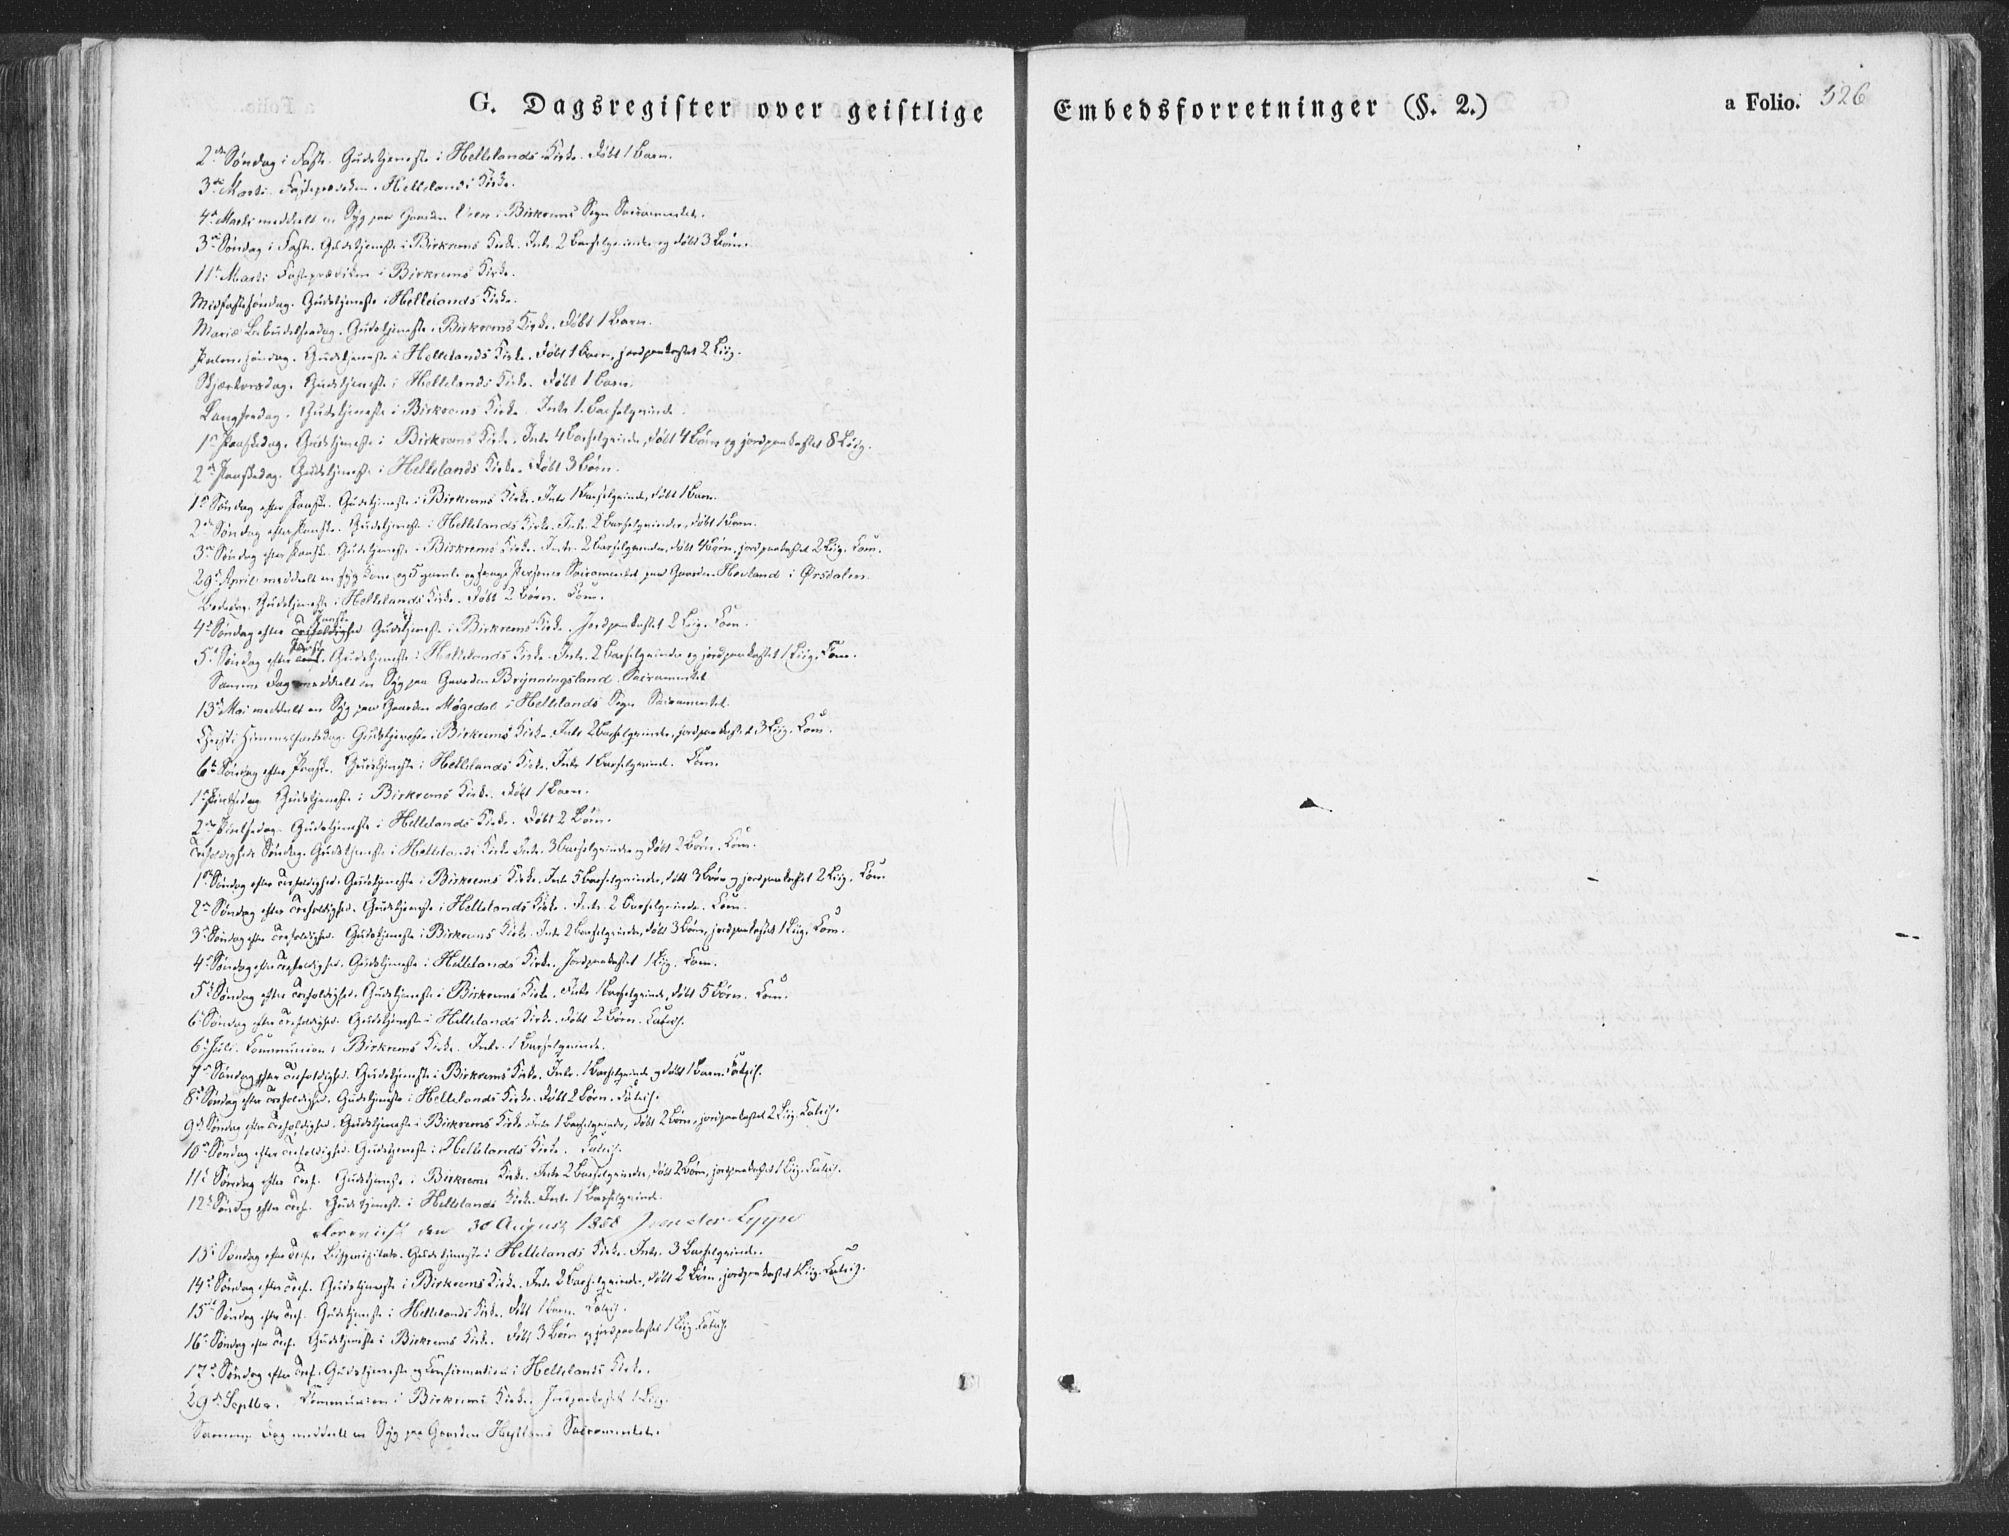 G. Dagsregister over geistlige Embedsforretninger (§. 2.)
a Folio. 326
2den Søndag i Faste. Gudstjeneste i Hellelands Kirke. Døbt 1 Barn.
3de Marts. Fasteprædiken i Hellelands Kirke.
4de Marts meddeelt en Syg paa Gaarden i Birkrems Sogn Sacramentet.
3de Søndag i Faste. Gudstjeneste i Birkrems Kirke. Intr. 2 Barselqvinder og døbt 3 Børn.
11te Marts Fasteprædiken i Birkrems Kirke.
Midfastesøndag. Gudstjeneste i Hellelands Kirke.
Mariæ Bebudelsesdag. Gudstjeneste i Birkrems Kirke. Døbt 1 Barn.
Palmesøndag. Gudstjeneste i Hellelands Kirke. Døbt 1 Barn, jordpaakastet 2 Liig.
Skjærtorsdag. Gudstjeneste i Hellelands Kirke. Døbt 1 Barn.
Langfredag. Gudstjeneste i Birkrems Kirke. Intr. 1 Barselqvinde.
1ste Paaskedag. Gudstjeneste i Birkrems Kirke. Intr. 4 Barselqvinder, døbt 4 Børn og jordpaakastet 8 Liig.
2den Paaskedag. Gudstjeneste i Hellelands Kirke. Døbt 3 Børn.
1ste Søndag efter Paaske. Gudstjeneste i Birkrems Kirke. Intr. 1 Barselqvinde, døbt 1 Barn.
2den Søndag efter Paaske. Gudstjeneste i Hellelands Kirke. Intr. 2 Barselqvinder, døbt 1 Barn.
3de Søndag efter Paaske. Gudstjeneste i Birkrems Kirke. Intr. 2 Barselqvinder, døbt 4 Børn, jordpaakastet 2 Liig. Com.
29de April meddeelt en syg Kone og 5 gamle og svage Personer Sacramentet paa Gaarden Hovland i Ørsdalen.
Bededag. Gudstjeneste i Hellelands Kirke. Døbt 2 Børn. Com.
4de Søndag efter Paaske Gudstjeneste i Birkrems Kirke. Jordpaakastet 2 Liig. Com.
5te Søndag efter Paaske. Gudstjeneste i Hellelands Kirke. Intr. 2 Barselqvinder og jordpaakastet 1 Liig. Com.
Samme Dag meddeelt en Syg paa Gaarden Brynningsland Sacramentet.
13de Mai meddeelt en Syg paa Gaarden Møgedal i Hellelands Sogn Sacramentet.
Christi Himmelfartsdag. Gudstjeneste i Birkrems Kirke. Intr. 2 Barselqvinder, jordpaakastet 3 Liig. Com.
6te Søndag efter Paaske. Gudstjeneste i Hellelands Kirke. Intr. 1 Barselqvinde. Com.
1ste Pintsedag. Gudstjeneste i Birkrems Kirke. Døbt 1 Barn.
2den Pintsedag. Gudstjeneste i Hellelands Kirke. Døbt 2 Børn.
Trefoldigheds Søndag. Gudstjeneste i Hellelands Kirke. Intr. 3 Barselqvinder og døbt 2 Børn. Com.
1ste Søndag efter Trefoldighed. Gudstjeneste i Birkrems Kirke. Intr. 5 Barselqvinder, døbt 3 Børn og jordpaakastet 2 Liig. Com.
2den Søndag efter Trefoldighed. Gudstjeneste i Hellelands Kirke. Intr. 2 Barselqvinder. Com.
3de Søndag efter Trefoldighed. Gudstjeneste i Birkrems Kirke. Intr. 2 Barselqvinder, døbt 3 Børn, jordpaakastet 1 Liig. Com.
4de Søndag efter Trefoldighed. Gudstjeneste i Hellelands Kirke. Jordpaakastet 1 Liig. Com.
5te Søndag efter Trefoldighed. Gudstjeneste i Birkrems Kirke. Intr. 1 Barselqvinde, døbt 5 Børn. Com.
6te Søndag efter Trefoldighed. Gudstjeneste i Hellelands Kirke. Døbt 2 Børn. Catech.
6te Juli. Communion i Birkrems Kirke. Intr. 1 Barselqvinde.
7de Søndag efter Trefoldighed. Gudstjeneste i Birkrems Kirke. Intr. 1 Barselqvinde og døbt 1 Barn. Catech.
8de Søndag efter Trefoldighed. Gudstjeneste i Hellelands Kirke. Døbt 2 Børn. Catech.
9de Søndag efter Trefoldighed. Gudstjeneste i Birkrems Kirke. Intr. 1 Barselqvinde, døbt 2 Børn, jordpaakastet 2 Liig. Catech.
10de Søndag efter Trefoldighed. Gudstjeneste i Hellelands Kirke. Catech.
11te Søndag efter Tref. Gudstjeneste i Birkrems Kirke. Intr. 2 Barselqvinder, døbt 2 Børn, jordpaakastet 1 Liig. Catech.
12te Søndag efter Tref. Gudstjeneste i Hellelands Kirke. Intr. 1 Barselqvinde.
den 30 August 1858
13de Søndag efter Tref. Gudstjeneste i Hellelands Kirke. Intr. 3 Barselqvinder.
14de Søndag efter Tref. Gudstjeneste i Birkrems Kirke. Intr. 2 Barselqvinder, døbt 2 Børn, jordpaakastet 1 Liig. Catech.
15de Søndag efter Tref. Gudstjeneste i Hellelands Kirke. Døbt 1 Barn. Catech.
16de Søndag efter Tref. Gudstjeneste i Birkrems Kirke. Døbt 3 Børn og jordpaakastet 1 Liig. Catech.
17de Søndag efter Tref. Gudstjeneste og Confirmation i Hellelands Kirke.
29de Septbr. Communion i Birkrems Kirke. Jordpaakastet 1 Liig.
Samme Dag meddeelt en Syg paa Gaarden Sacramentet.